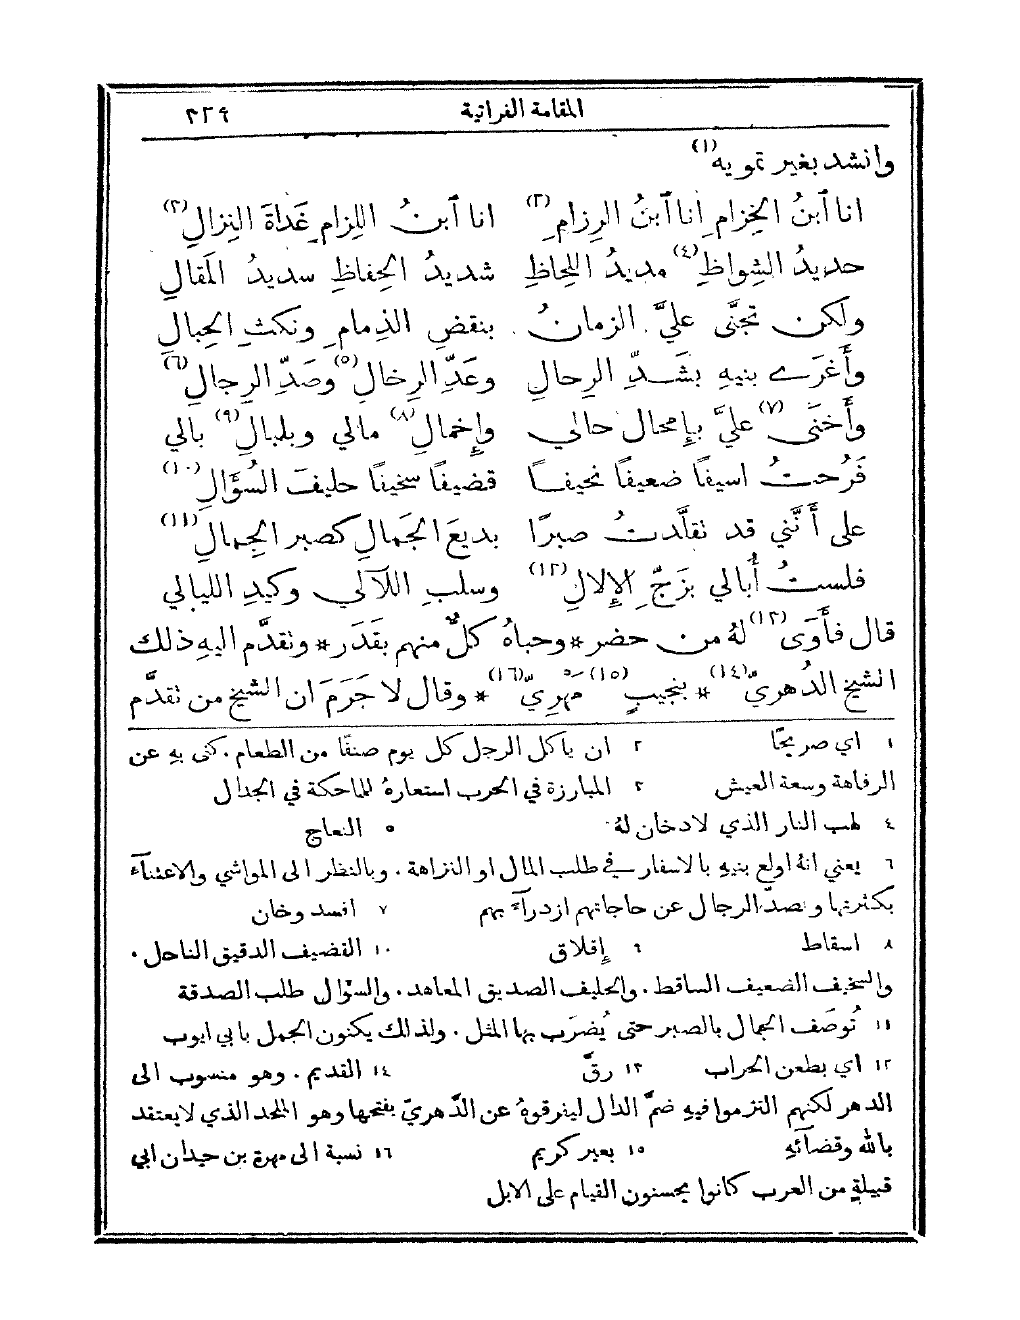 المقامة الفراتية ٣٣٩
وانشد بغير تمويه(١)
انا ٱبنُ الخِزامِ انا ٱبنُ الرِزامِ(٢) انا ٱبنُ اللِزامِ غَداةَ النِزالِ(٣)
حديدُ الشِواظِ(٤) مديدُ اللِحاظِ شديدُ الحِفاظِ سديدُ المَقالِ
ولكن تجنَّى عليَّ الزمانُ بنقضِ الذِمامِ ونكثِ الحِبالِ
وأَغرَى بنيهِ بشَدِّ الرِحالِ وعَدِّ الرِخالِ(٥) وصَدِّ الرِجالِ(٦)
وأَخنَى(٧) عليَّ بإِمحالِ حالي وإِخمالِ(٨) مالي وبلبالِ(٩) بالي
فَرُحتُ اسيفًا ضعيفًا نحيفًا قضيفًا سخيفًا حليفَ السُؤَالِ(١٠)
على أَنَّني قد تقلَّدتُ صبرًا بديعَ الجَمالِ كصبرِ الجِمالِ(١١)
فلستُ أُبالي بزَجِّ الإِلالِ(١٢) وسلبِ اللآلي وكيدِ الليالي
قال فأَوَى(١٣) لهُ من حضر * وحباهُ كلٌّ منهم بقَدَر * وتقدَّم اليهِ ذلك
الشيخ الدُهريّ(١٤) * بنجيبٍ(١٥) مَهْرِيّ(١٦) * وقال لا جَرَمَ ان الشيخ من تقدَّم
١ اي صريحًا ٢ ان ياكل الرجل كل يوم صنفًا من الطعام . كنى بهِ عن
الرفاهة وسعة العيش ٣ المبارزة في الحرب استعارهُ للماحكة في الجدال
٤ لهب النار الذي لا دخان لهُ ٥ النعاج
٦ يعني انهُ اولع بنيهِ بالاسفار في طلب المال او النزاهة . وبالنظر الى المواشي والاعتنآء
بكثرتها وبصدّ الرجال عن حاجاتهم ازدرآءً بهم ٧ افسد وخان
٨ اسقاط ٩ إِقلاق ١٠ القضيف الدقيق الناحل .
والسخيف الضعيف الساقط . والحليف الصديق المعاهد . والسؤَال طلب الصدقة
١١ تُوصَف الجمال بالصبر حتى يُضرَب بها المثل . ولذلك يكنون الجمل بابي ايوب
١٢ اي بطعن الحراب ١٣ رقَّ ١٤ القديم . وهو منسوب الى
الدهر لكنهم التزموا فيهِ ضمَّ الدال ليفرقوهُ عن الدَّهريّ بفتحها وهو الملحد الذي لا يعتقد
بالله وقضآئهِ ١٥ بعير كريم ١٦ نسبة الى مهرة بن حيدان ابي
قبيلةٍ من العرب كانوا يحسنون القيام على الابل